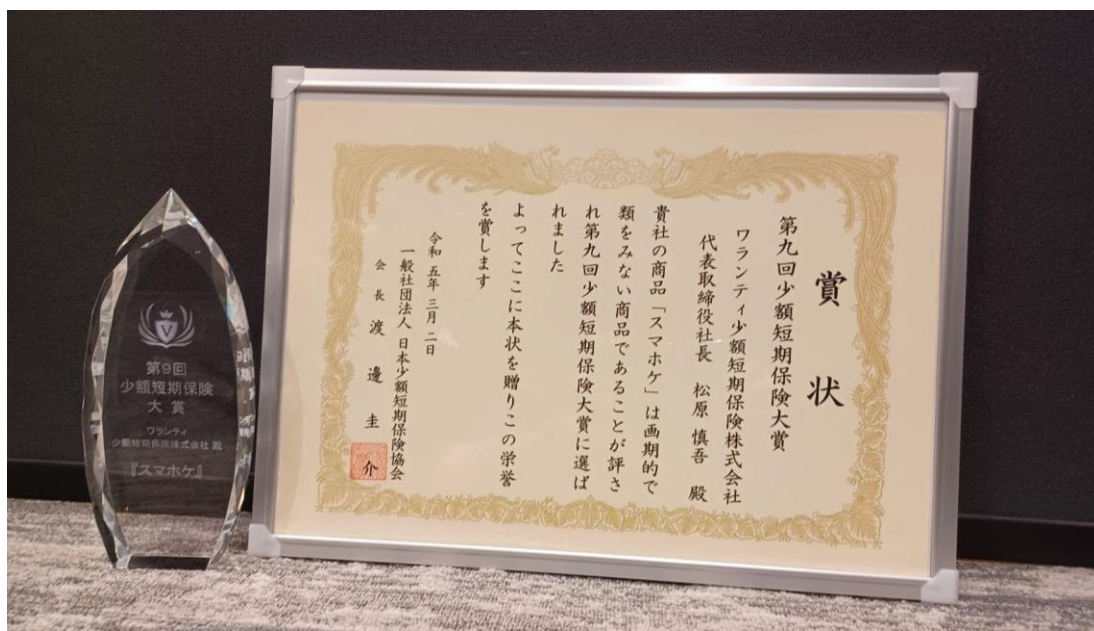 第9回
少額短期保険
大賞
ワランティ
少額短期保険株式会社 殿
『スマホケ』
賞状
第九回少額短期保険大賞
ワランティ少額短期保険株式会社
代表取締役社長 松原 慎吾 殿
貴社の商品「スマホケ」は画期的で
類をみない商品であることが評さ
れ第九回少額短期保険大賞に選ば
れました
よってここに本状を贈りこの栄誉
を賞します
令和 五年 三月 二日
一般社団法人 日本少額短期保険協会
会長 渡邊 圭介